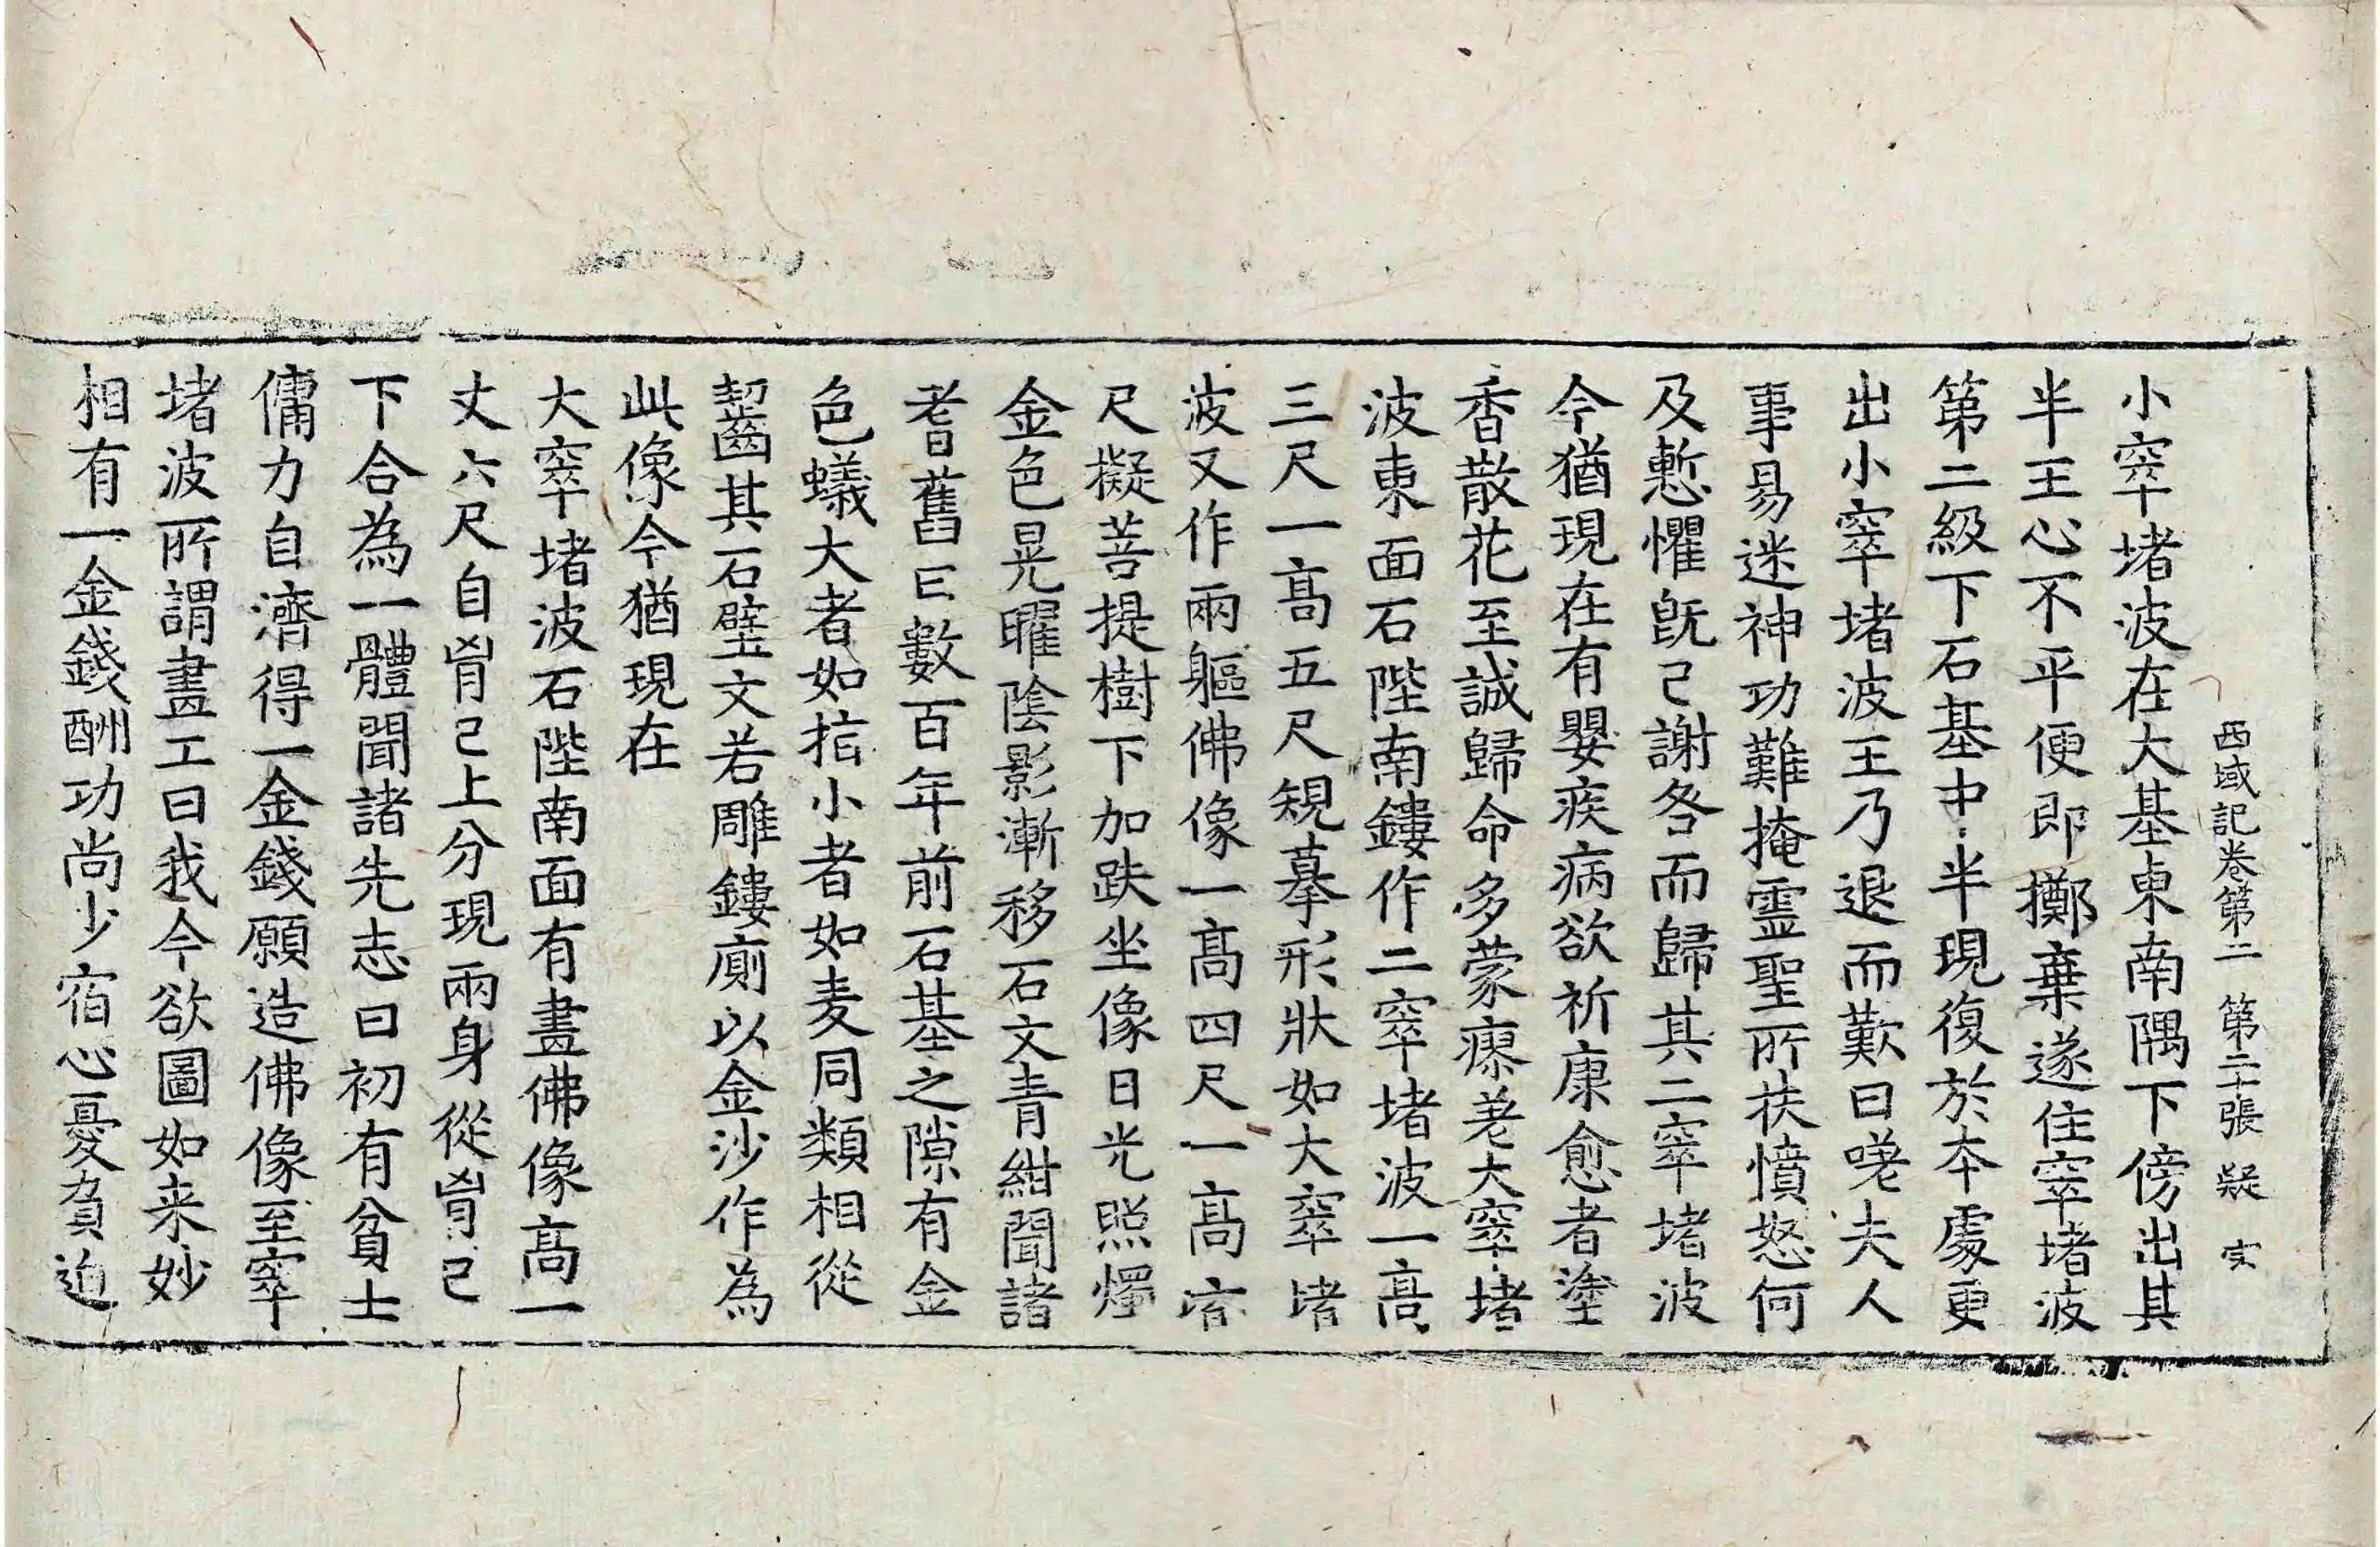 西域記卷第二 第二十張 疑 宊
小窣堵波在大基東南隅下傍出其
半王心不平便即擲棄遂住窣堵波
第二級下石基中半現復於本處更
出小窣堵波王乃退而歎曰嗟夫人
事易迷神功難掩霊聖所扶憤怒何
及慙懼旣已謝咎而歸其二窣堵波
今猶現在有嬰疾病欲祈康愈者塗
香散花至誠歸命多蒙瘳差大窣堵
波東面石陛南鏤作二窣堵波一高
三尺一高五尺規摹形狀如大窣堵
波又作兩軀佛像一高四尺一高六
尺擬菩提樹下加趺坐像日光照燭
金色晃曜陰影漸移石文青紺聞諸
耆舊曰數百年前石基之隙有金
色蟻大者如指小者如麦同類相從
齧其石壁文若雕鏤廁以金沙作為
此像今猶現在
大窣堵波石陛南面有畫佛像高一
丈六尺自胷已上分現兩身從胷已
下合為一體聞諸先志曰初有貧士
傭力自濟得一金錢願造佛像至窣
堵波所謂畫工曰我今欲圖如来妙
相有一金錢酬功尚少宿心憂負迫